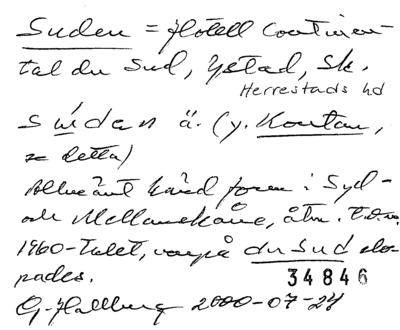 Suden = Hotell Continen-
tal du Sud, Ystad, Sk.
Herrestads hd
Súden ä. (y. Kontan,
se detta)
Allmänt känd form i Syd-
och Mellanskåne, åtm. t.o.m.
1960-talet, varpå du Sud slo-
pades.
34846
G. Hallberg 2000-07-24